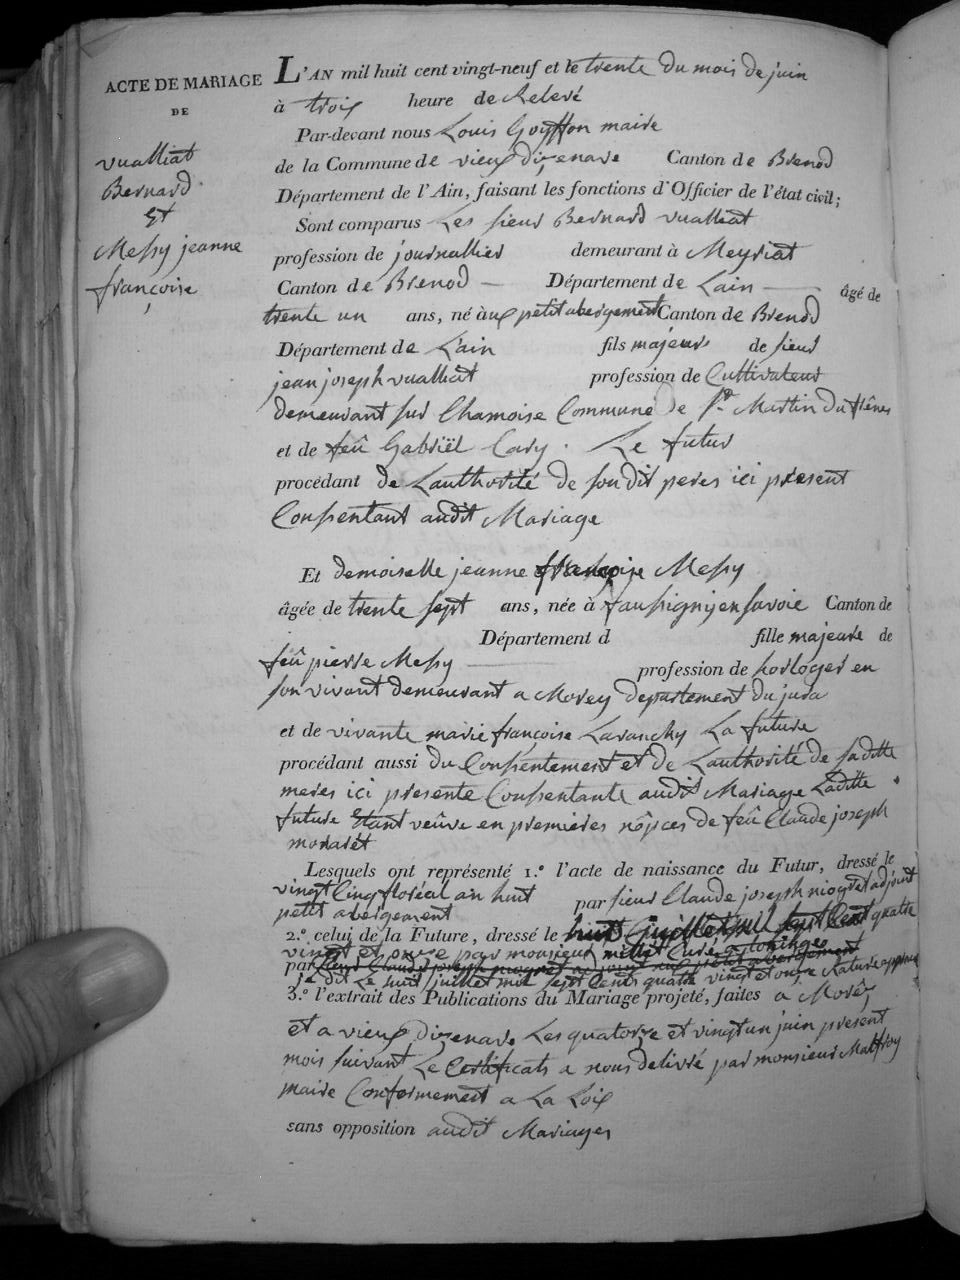 ACTE DE MARIAGE
DE
vualliat
Bernard
Et
Messy jeanne
françoise
L'AN mil huit cent vingt-neuf et le trente du mois de juin
à trois heure de Relevé
Par-devant nous Louis Goyffon maire
de la Commune de vieux dizenave Canton de Brenod
Département de l'Ain, faisant les fonctions d'Officier de l'état civil;
Sont comparus Les sieur Bernard vualliat
profession de journallier demeurant à Meyriat
Canton de Brenod Département de Lain âgé de
trente un ans, né àux petit abergement Canton de Brenod
Département de L'ain fils majeur de sieur
jean joseph vualliat profession de Cultivateur
demeurant sur Chamoise Commune de St. Martin du frênes
et de feû Gabriël Cary. Le futur
procédant de Lauthorité de son dit peres ici present
Consentant audit Mariage
Et demoiselle jeanne françoise Messy
âgée de trente sept ans, née à faussigny en savoie Canton de
Département d fille majeure de
feû pierre Messy profession de horloger en
son vivant demeurant a Morey departement du jura
et de vivante marie françoise Lavanchy La future
procédant aussi du Consentement et de Lauthorité de sa ditte
meres ici presente Consentante audit Mariage Laditte
future Etant veûve en premieres nôpces de feû Claude joseph
moraret
Lesquels ont représenté 1.º l'acte de naissance du Futur, dressé le
vingt Cinq floréal an huit par sieur Claude joseph niogret adjoint
petit abergement
2.º celui de la Future, dressé le huit juillet mil sept Cent quatre
vingt et onze par monsieur millet Curé a
par sieur Claude joseph niogret
je dit Le huit juillet mil sept Cents quatre vingt et onze Rature approuvé
3.º l'extrait des Publications du Mariage projeté, faites a Morêy
et a vieux dizenave Les quatorze et vingt un juin present
mois suivant Le Certificats a nous delivré par monsieur Malfroy
maire Conformement a La Loix
sans opposition audit Mariages